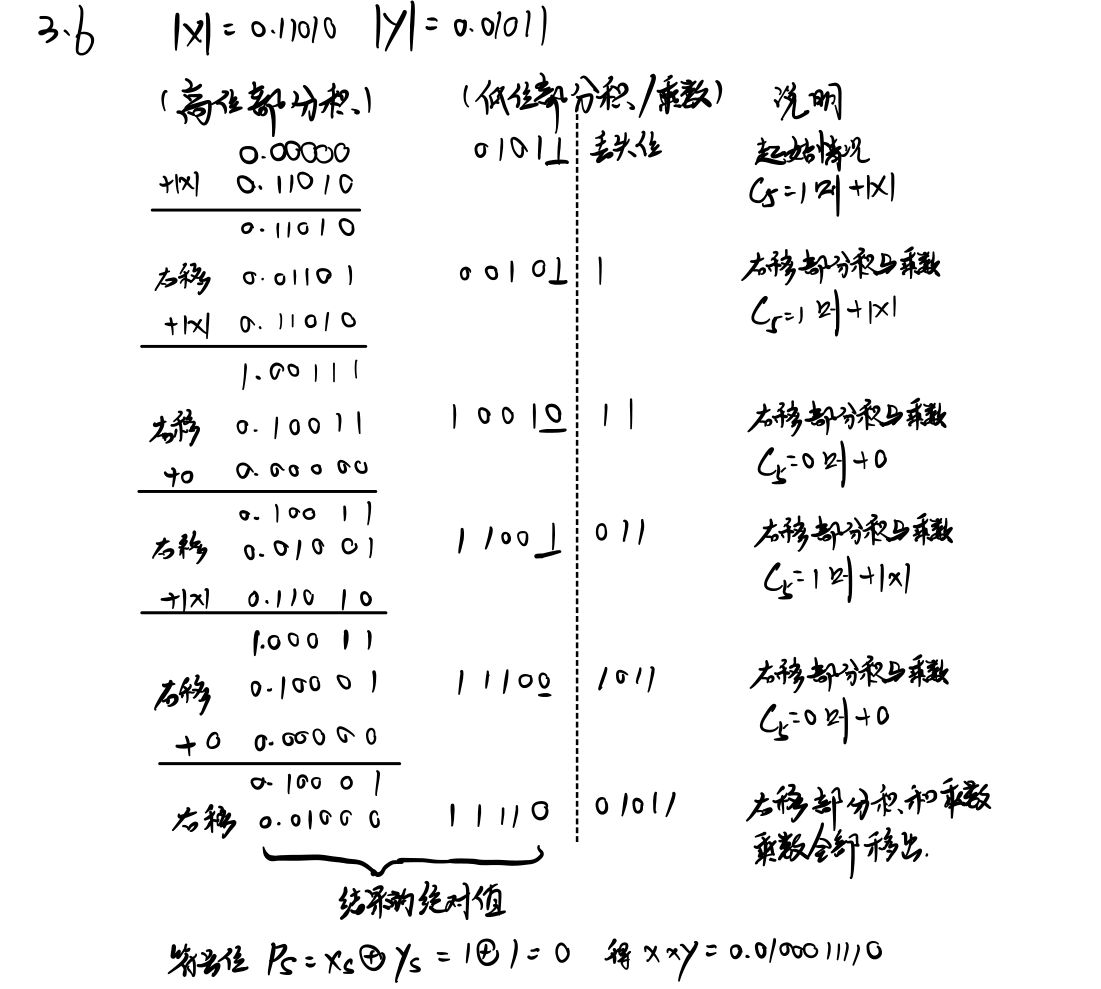 3.6 |X| = 0.11010 |Y| = 0.01011
(高位部分积) (低位部分积/乘数) 说明
0.00000 01011 丢失位 起始情况
+|X| 0.11010 C5=1时+|X|
0.11010
右移 0.01101 00101 1 右移部分积与乘数
+|X| 0.11010 C5=1时+|X|
1.00111
右移 0.10011 10010 11 右移部分积与乘数
+0 0.00000 C5=0时+0
0.10011
右移 0.01001 11001 011 右移部分积与乘数
+|X| 0.11010 C5=1时+|X|
1.00011
右移 0.10001 11100 1011 右移部分积与乘数
+0 0.00000 C5=0时+0
0.10001
右移 0.01000 11110 01011 右移部分积和乘数
乘数全部移出.
结果的绝对值
符号位 Ps = Xs⊕Ys = 1⊕1 = 0 得 X×Y = 0.0100011110